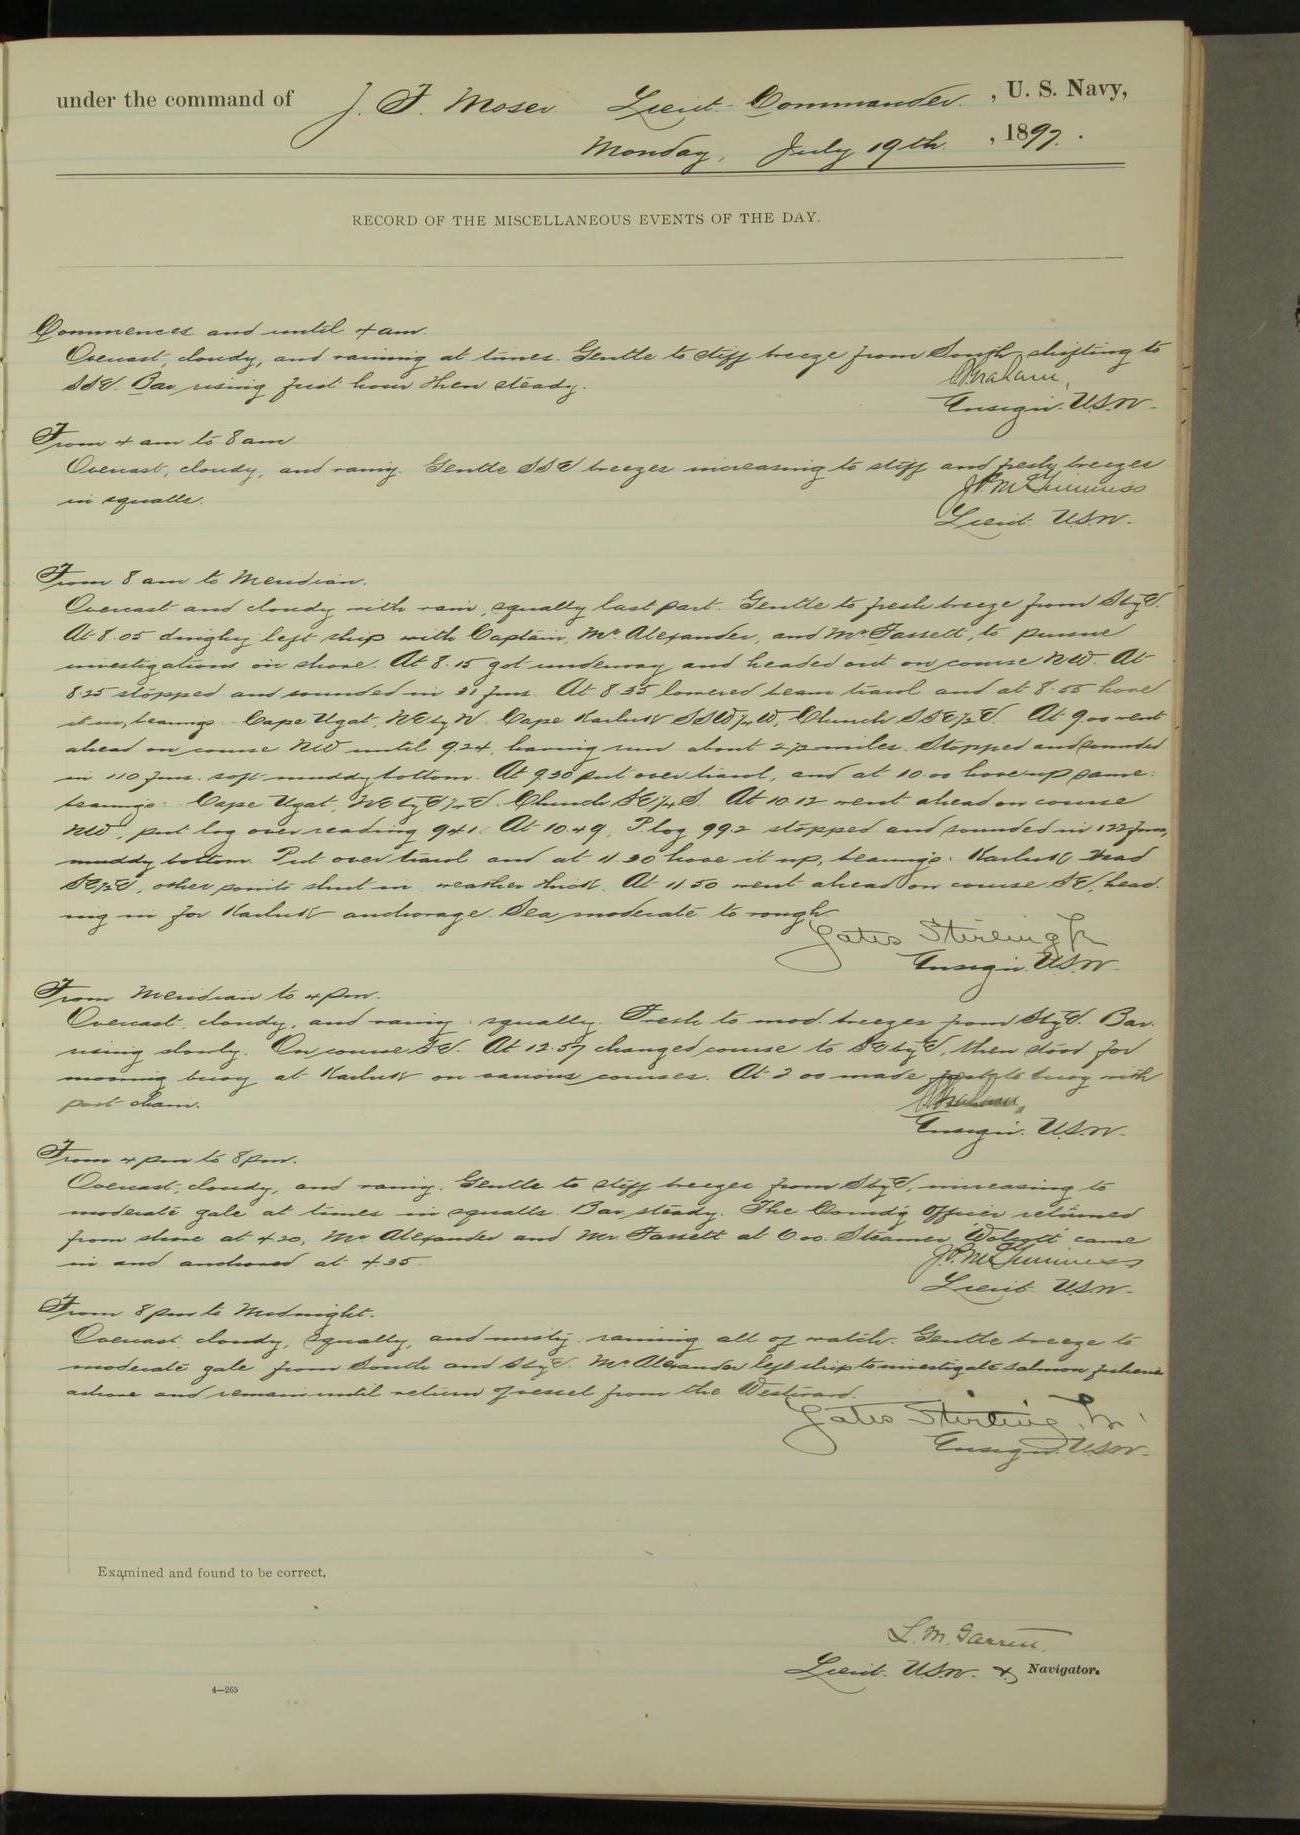 under the command of J. F. Moser Lieut-Commander. , U. S. Navy,
Monday, July 19th. , 1897.
RECORD OF THE MISCELLANEOUS EVENTS OF THE DAY.
Commences and until 4 am.
Overcast, cloudy, and raining at times. Gentle to stiff breeze from South shifting to
SSE. Bar rising first hour then steady.
Ensign. U.S.N.
From 4 am to 8 am
Overcast, cloudy, and rainy. Gentle SSE breezes increasing to stiff and fresh breezes
in squalls.
J.P. McGuinness
Lieut. U.S.N.
From 8 am to Meridian.
Overcast and cloudy with rain, squally last part. Gentle to fresh breeze from SbyE.
At 8.05 dinghy left ship with Captain, Mr Alexander, and Mr Fassett, to pursue
investigations on shore. At 8.15 got underway and headed out on course NW. At
8.25 stopped and sounded in 31 fms. At 8.35 lowered beam trawl and at 8.55 hove
it in, bearings - Cape Ugat, NEbyN. Cape Karluk SSW1/4W, Church SSE1/2E. At 9.00 went
ahead on course NW until 9.24, having run about 2 miles. Stopped and sounded
in 110 fms. soft muddy bottom. At 9.30 put over trawl, and at 10.00 hove up same:
bearings - Cape Ugat, NEbyE1/2E. Church SE1/4S. At 10.12 went ahead on course
NW, put log over reading 94.1. At 10.49, P.log 99.2 stopped and sounded in 122 fms,
muddy bottom. Put over trawl and at 11.30 hove it up, bearings: Karluk Head
SE1/2E, other points shut in, weather thick. At 11.50 went ahead on course SE, head-
ing in for Karluk anchorage. Sea moderate to rough.
Yates Stirling Jr
Ensign. U.S.N.
From Meridian to 4 pm.
Overcast, cloudy, and rainy: squally. Fresh to mod. breezes from SbyE. Bar.
rising slowly. On course SE. At 12.57 changed course to SEbyE, then stood for
mooring buoy at Karluk on various courses. At 2.00 made fast to buoy with
port chain.
Ensign. U.S.N.
From 4 pm to 8 pm.
Overcast, cloudy, and rainy. Gentle to stiff breezes from SbyE, increasing to
moderate gale at times in squalls. Bar steady. The Comd'g Officer returned
from shore at 4.20, Mr Alexander and Mr. Fassett at 6.00. Steamer "Wolcott" came
in and anchored at 4.35.
J.P. McGuinness
Lieut. U.S.N.
From 8 pm to Midnight.
Overcast, cloudy, squally, and misty: raining all of watch. Gentle breeze to
moderate gale from South and SbyE. Mr Alexander left ship to investigate salmon fisheries
ashore and remain until return of vessel from the Westward.
Yates Stirling, Jr.
Ensign. U.S.N.
Examined and found to be correct.
L. M. Garrett.
Lieut. U.S.N. & Navigator.
4—265